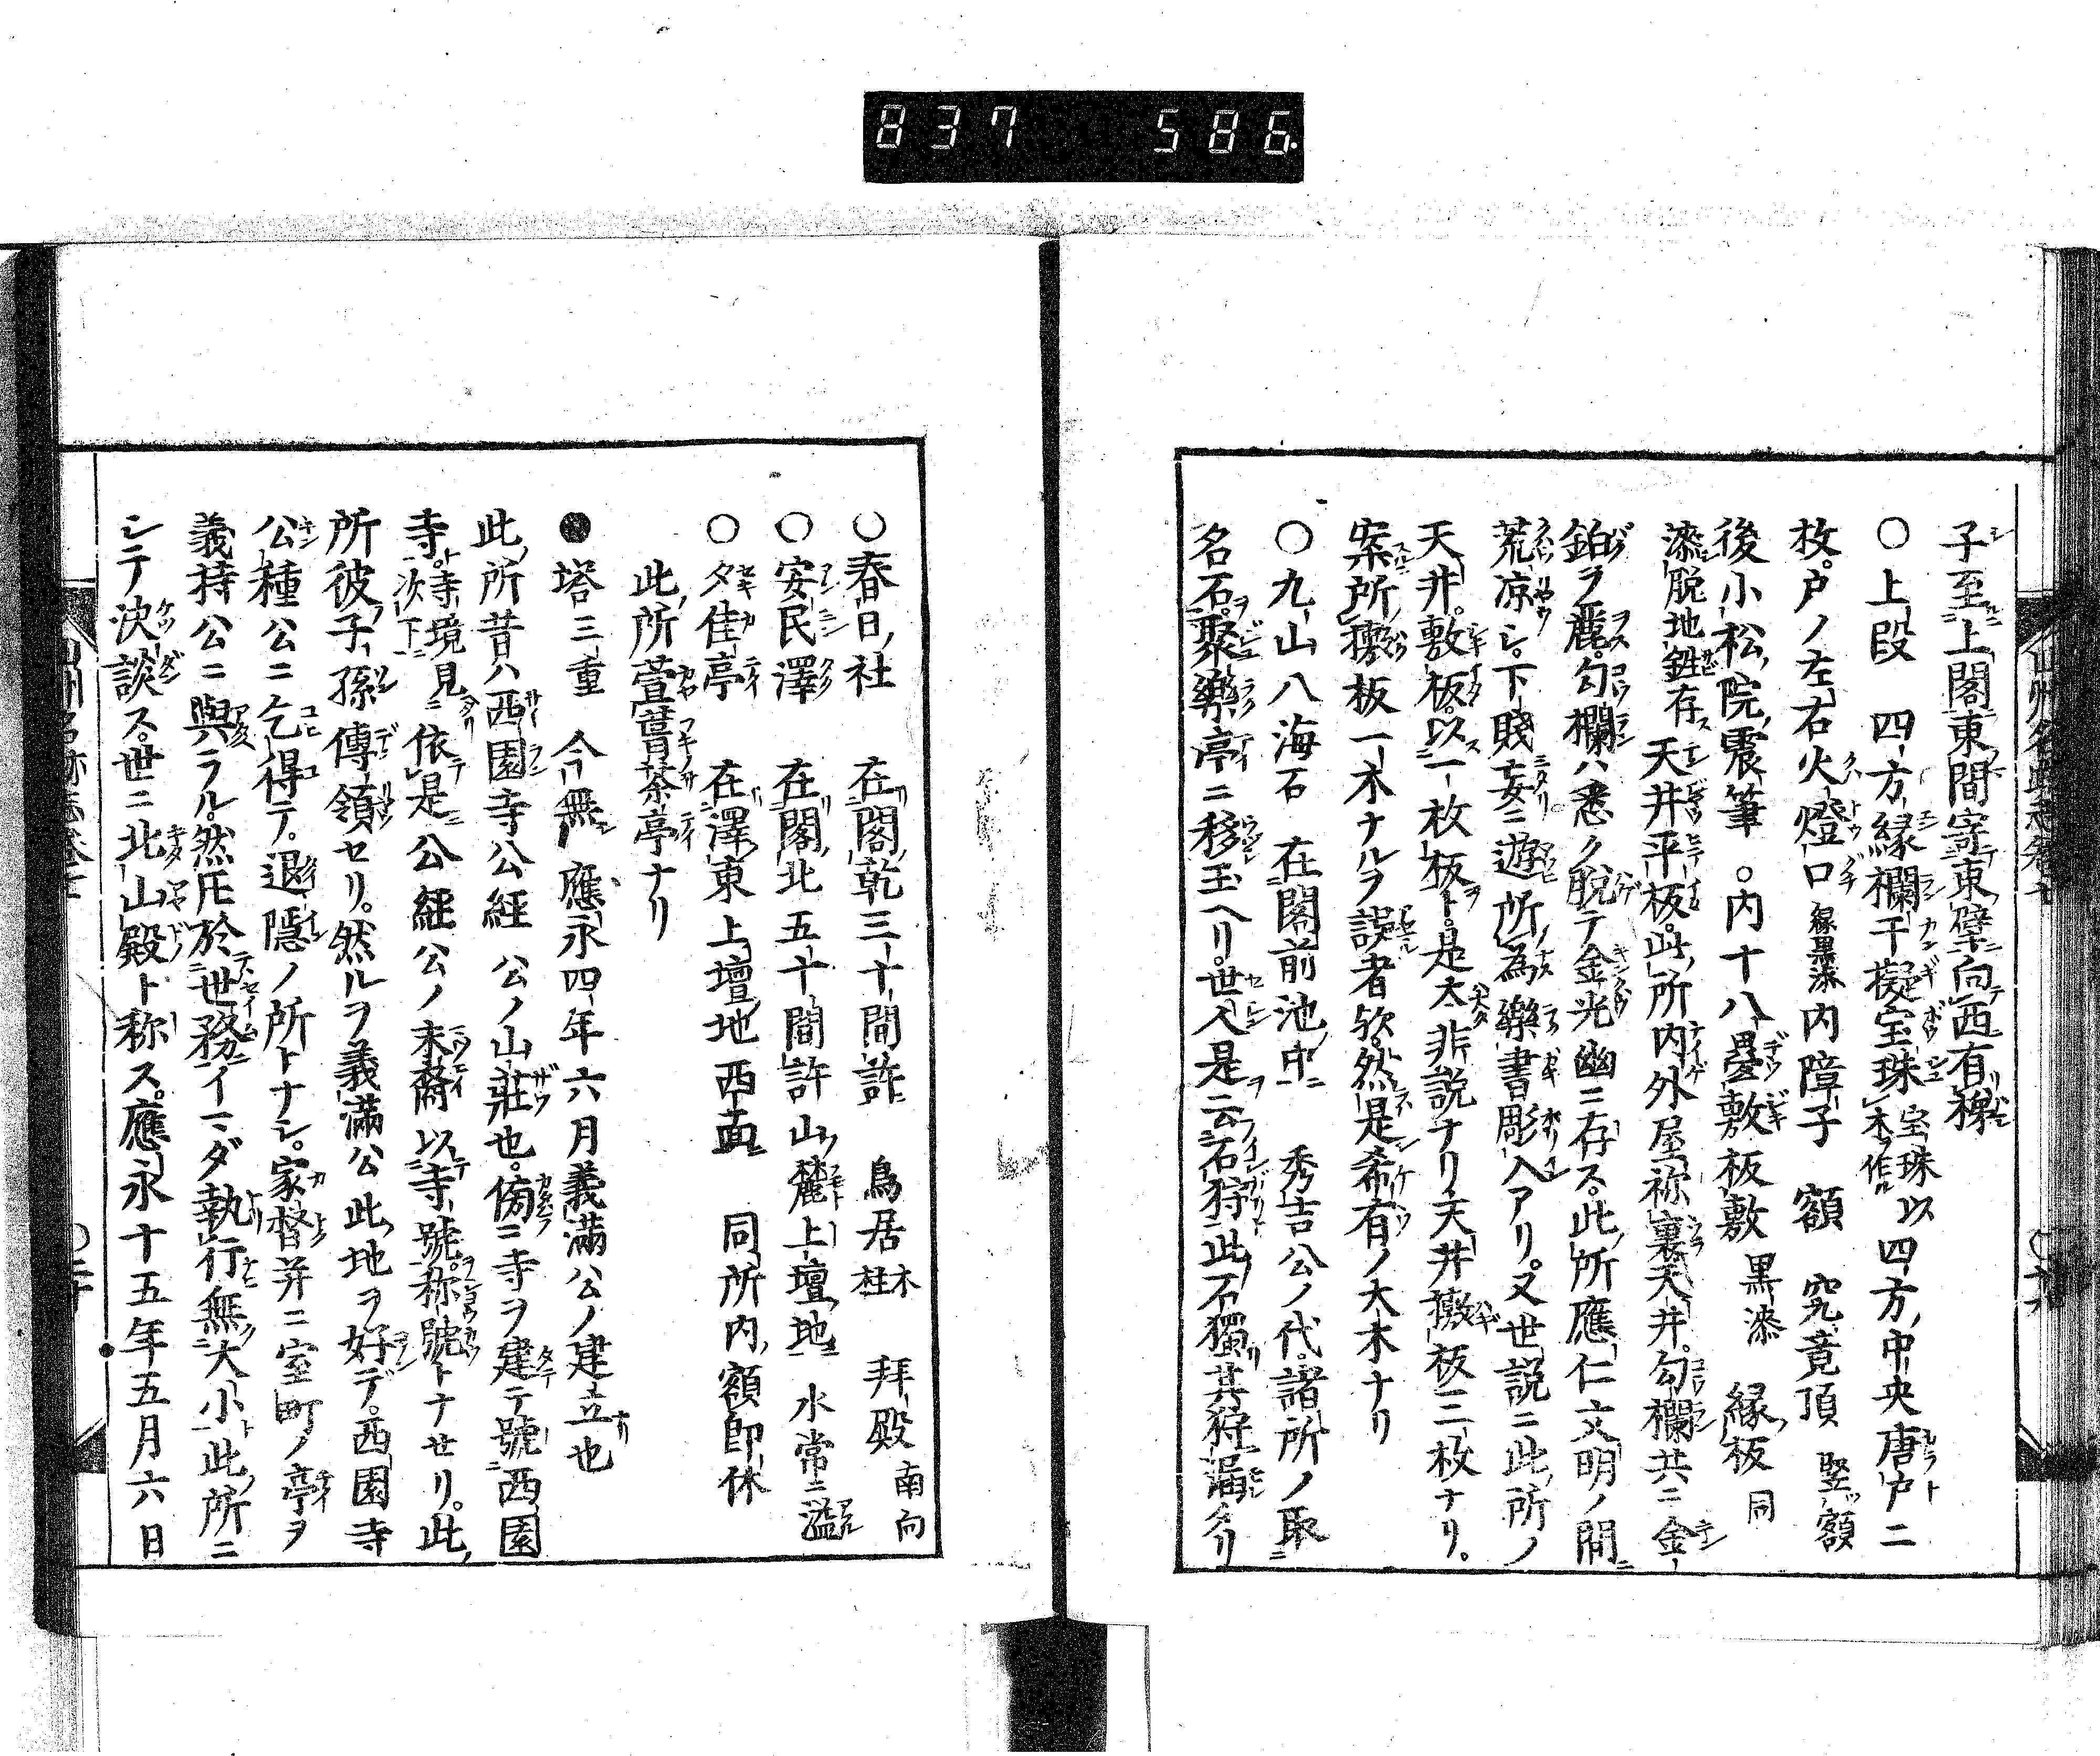 837 586
子至上閣東間寄東壁向西有梯
○上段 四方縁欄干擬宝珠木作宝珠以四方中央唐戸二
枚。戸ノ左右火燈口縁黒漆内障子 額 究竟頂 竪額
後小松院震筆 。内十八畳敷板敷 黒漆 縁板 同
漆脱地鉎存ス 天井平板。此所内外屋祢裏天井。勾欄共ニ金
鉑ヲ麗。勾欄ハ悉ク脱テ金光幽ニ存ス。此所應仁文明ノ間
荒凉シ。下賤妄ニ遊所為樂書彫入アリ。又世説ニ此所ノ
天井。敷板。以一枚板ト。是大非説ナリ天井板三枚ナリ。
案所板一木ナルヲ誤者欤。然是希有ノ大木ナリ
○九山八海石 在閣前池中 秀吉公ノ代。諸所ノ取
名石。聚樂亭ニ移玉ヘリ。世人是云石狩此石獨其狩漏タリ
○春日社 在閣乾三十間許 鳥居木柱 拜殿南向
○安民澤 在閣北五十間許山麓上壇地 水常ニ溢
○夕佳亭 在澤東上壇地西面 同所内額即休
此所萱葺茶亭ナリ
●塔三重 今無 應永四年六月義満公ノ建立也
此所昔ハ西園寺公経公ノ山莊也。傍ニ寺ヲ建テ號西園
寺。寺境見次下依是公経公ノ末裔以寺號。称號トナせリ。此
所彼子孫傳領セリ。然ルヲ義満公此地ヲ好デ。西園寺
公種公ニ乞得テ。退隠ノ所トナシ。家督并ニ室町ノ亭ヲ
義持公ニ與ラル。然𪜈於世務イマダ執行無大小此所ニ
シテ決談ス。世ニ北山殿ト称ス。應永十五年五月六日